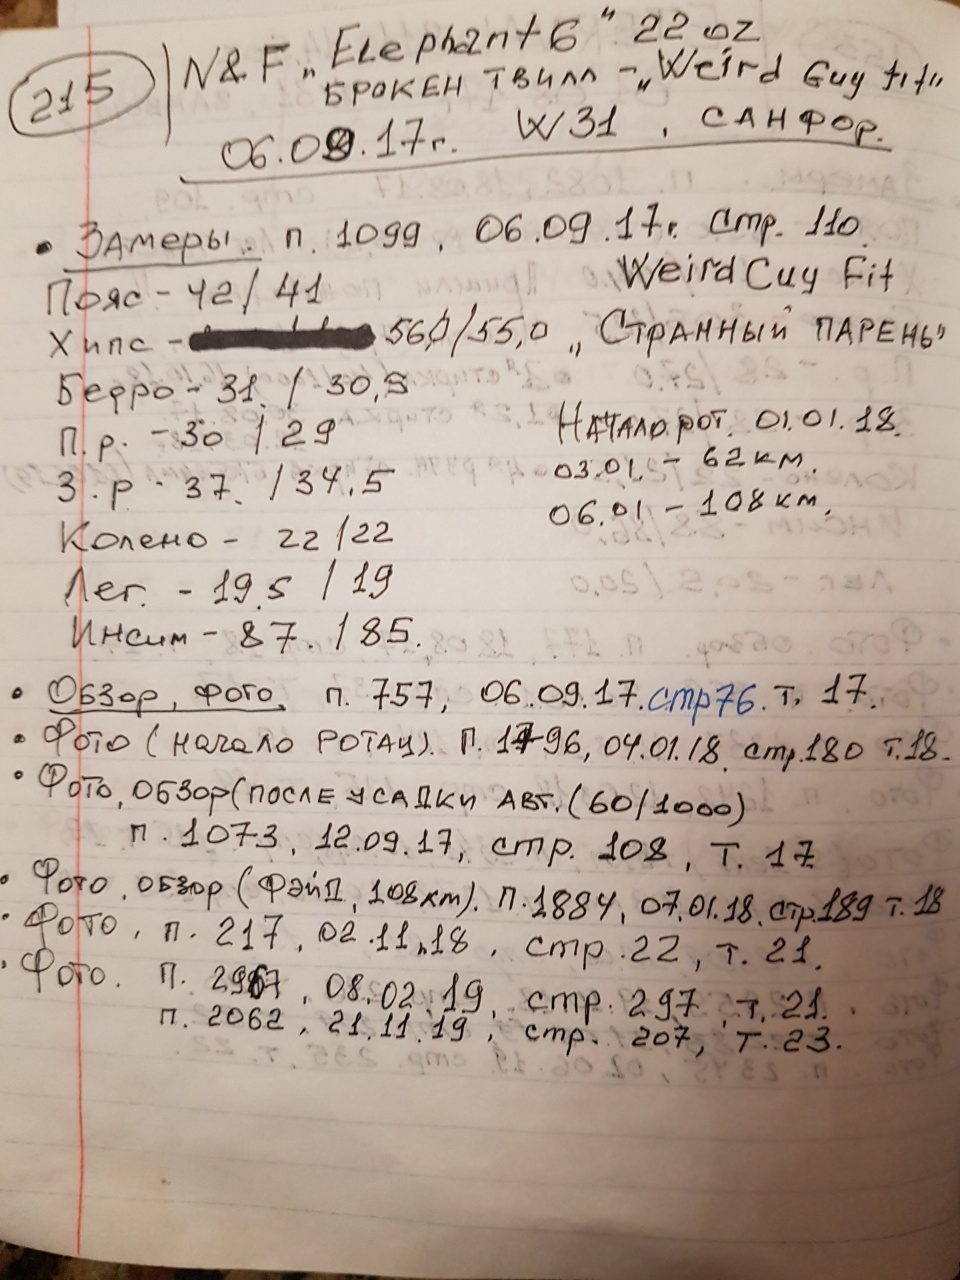 215
N&F „Elephant 6" 22 oz
БРОКЕН ТВИЛЛ - „Weird Guy fit"
06.09.17г. W31, САНФОР.
• Замеры. п. 1099, 06.09.17г. стр. 110.
Пояс - 42/41 Weird Guy Fit
Хипс - 56,0/55,0 „СТРАННЫЙ ПАРЕНЬ"
Берро - 31. / 30,5
П.р. - 30 / 29 НАЧАЛО РОТ. 01.01.18.
З.р - 37. /34,5 03.01. - 62 км.
Колено - 22/22 06.01 - 108 км.
Лег. - 19.5 / 19
Инсим - 87. /85.
• Обзор, фото, п. 757, 06.09.17. стр 76. т. 17.
• Фото (начало РОТАЦ). П. 1796, 04.01.18. стр.180 т.18.
• Фото, ОБЗОР (ПОСЛЕ УСАДКИ АВТ. (60/1000)
п. 1073, 12.09.17, стр. 108, т. 17
• Фото, обзор (Фэйд, 108 км). П.1884, 07.01.18. стр.189 т.18
• Фото, п. 217, 02.11.18, стр. 22, т. 21.
• Фото. п. 2967, 08.02.19, стр. 297, т. 21.
п. 2062, 21.11.19, стр. 207, т. 23.